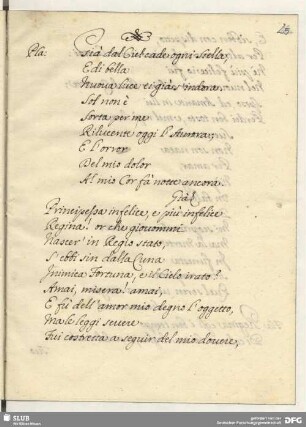 Pla: Già dal Ciel cade ogni Stella,
E di bella
Nuova luce ei già s'indora.
Sol non è
Sorta per me
Rilucente oggi l'Aurora;
E l'orror
Del mio dolor
Al mio Cor fà notte ancora.
Già
Principessa infelice, e più infelice
Regina! or che giovommi
Nascer' in Regio stato,
S'ebbi sin dalla Cuna
Inimica Fortuna, e il Cielo irato?
Amai, misera! amai,
E fù dell'amor mio degno l'oggetto,
Ma le leggi severe
Fui costretta a seguir del mio dovere,
SLUB
Wir führen Wissen.
DFG